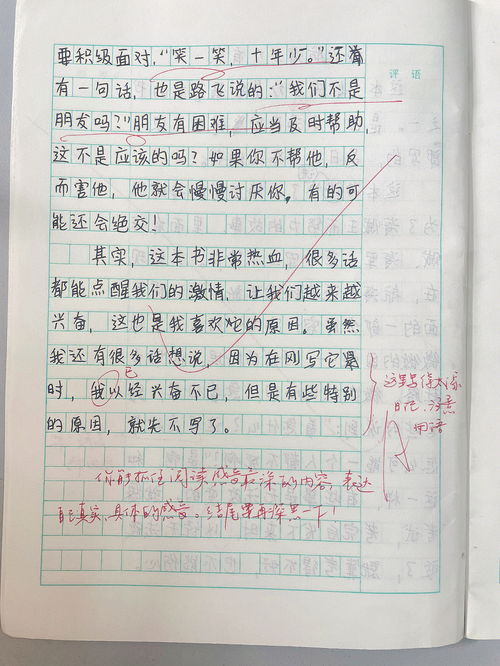 要积级面对，“笑一笑，十年少。”还有
评语
有一句话，也是路飞说的：“我们不是
朋友吗？”朋友有困难，应当及时帮助
这不是应该的吗？如果你不帮他，反
而害他，他就会慢慢讨厌你。有的可
能还会绝交！
其实，这本书非常热血，很多话
都能点醒我们的激情，让我们越来越
兴奋，这也是我喜欢它的原因。虽然
我还有很多话想说，因为在刚写它暑
已
时，我以经兴奋不已，但是有些特别
的原因，就先不写了。
这里写得太像
日记，注意
用语
你能抓住阅读感受最深的内容，表达
自己真实、具体的感受。结尾要再深思一下！